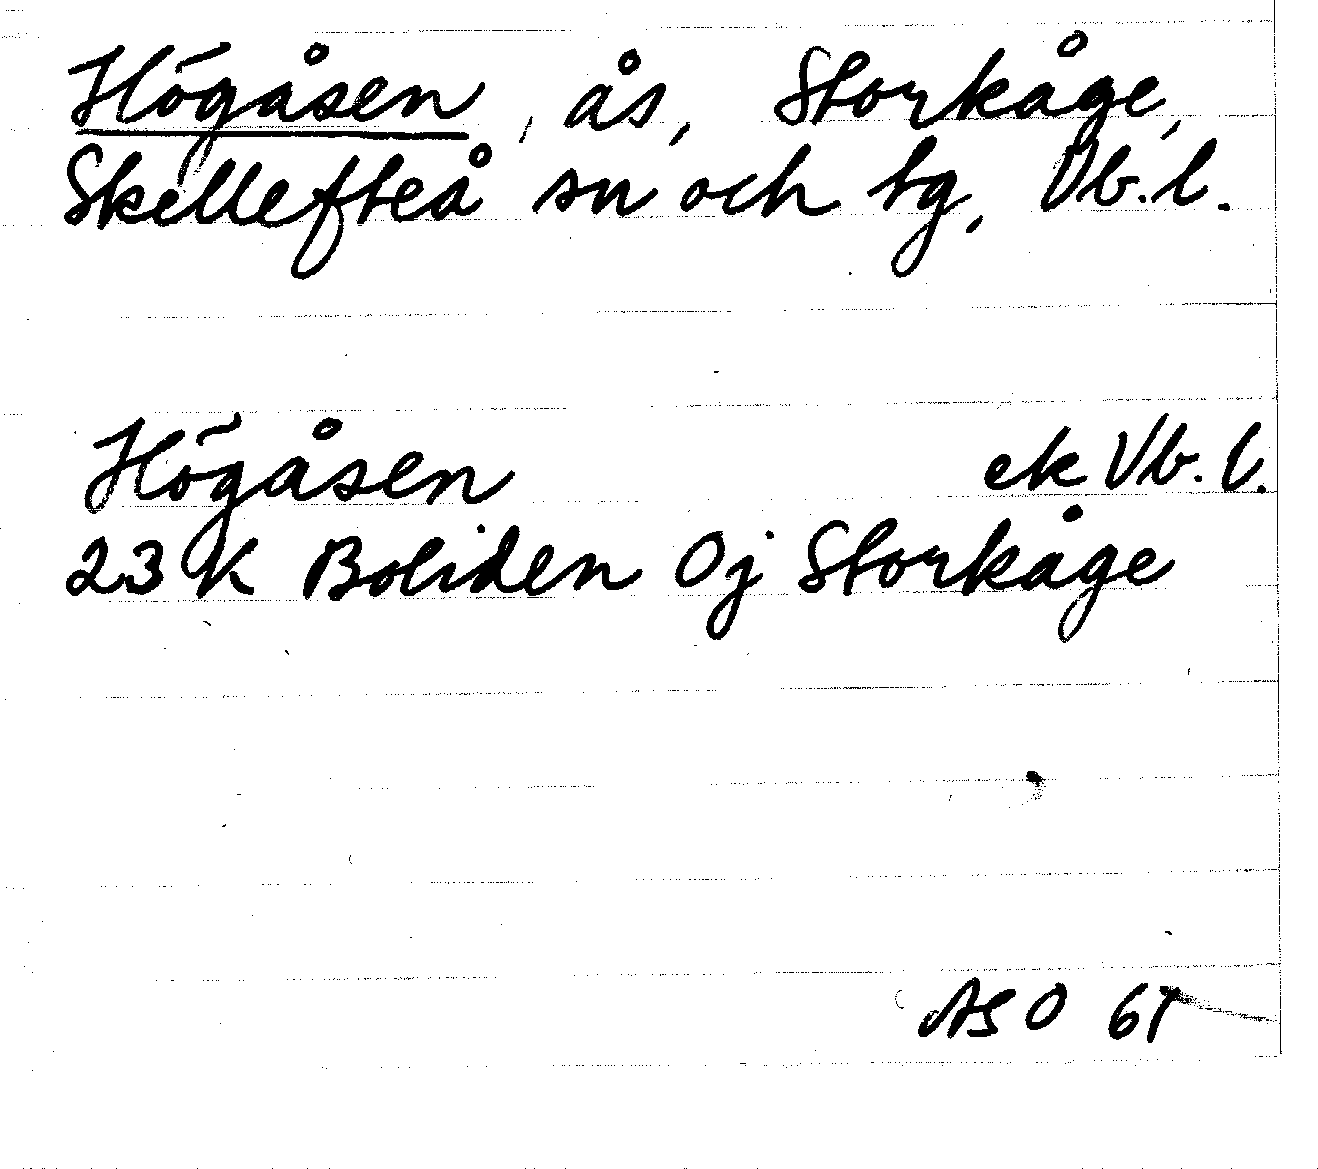 Högåsen, ås, Storkåge,
Skellefteå sn och tg, Vb.l.
Högåsen ek Vb.l.
23 K Boliden Oj Storkåge
ASO 61